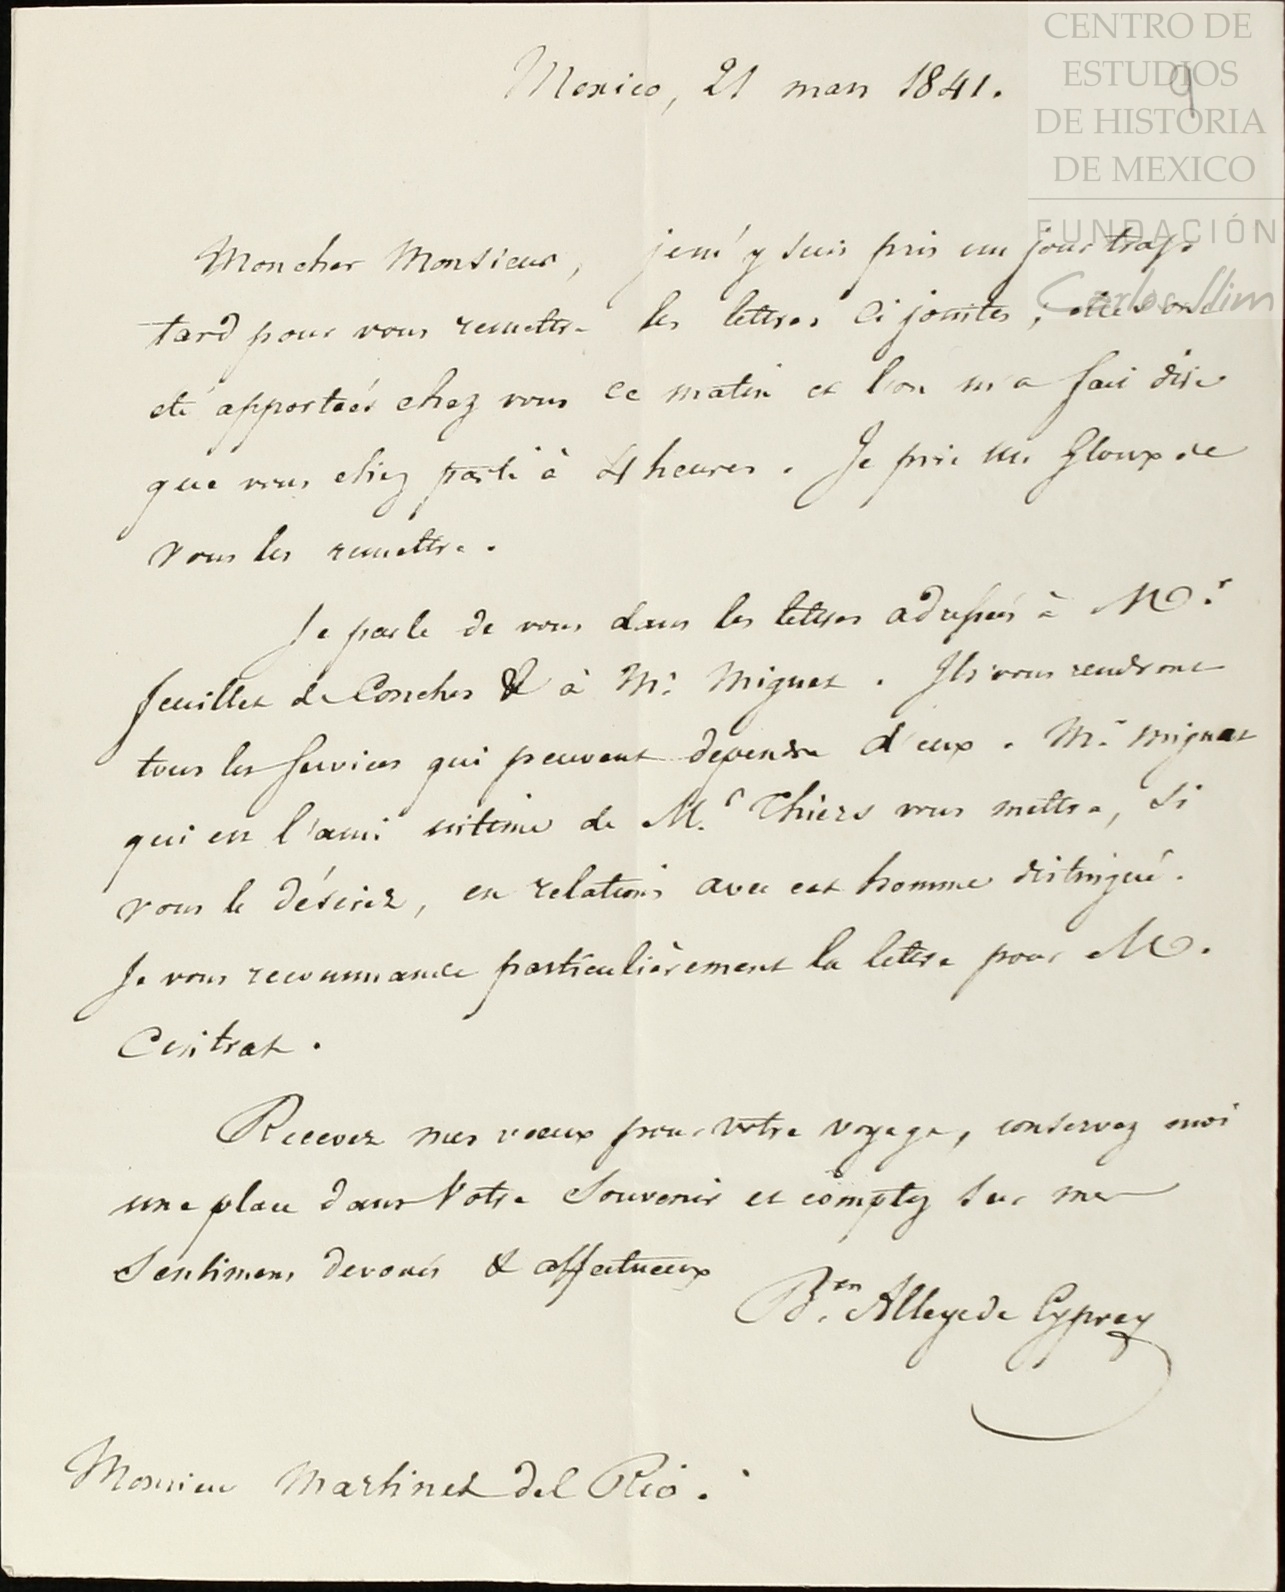 CENTRO DE
ESTUDIOS
DE HISTORIA
DE MEXICO
FUNDACIÓN
Carlos Slim
9
Mexico, 21 mars 1841.
Mon cher Monsieur, je m'y suis pris un jour trop
tard pour vous remettre les lettres ci jointes; elles ont
été apportées chez vous ce matin et l'on m'a fait dire
que vous étiez parti à 4 heures. Je prie Mr de
vous les remettre.
Je parle de vous dans les lettres adressées à Mr.
feuillet de Conches & à Mr. Mignet. Ils vous rendront
tous les services qui peuvent dependre d'eux. Mr. Mignet
qui est l'ami intime de Mr. Thiers vous mettra, si
vous le désirez, en relations avec cet homme distingué.
Je vous recommande particulièrement la lettre pour M.
Cintrat.
Recevez mes voeux pour votre voyage, conservez moi
une place dans votre Souvenir et comptez sur mes
Sentimens devoués & affectueux
Bon. Alleye de Cyprey
Monsieur Martinez del Rio.